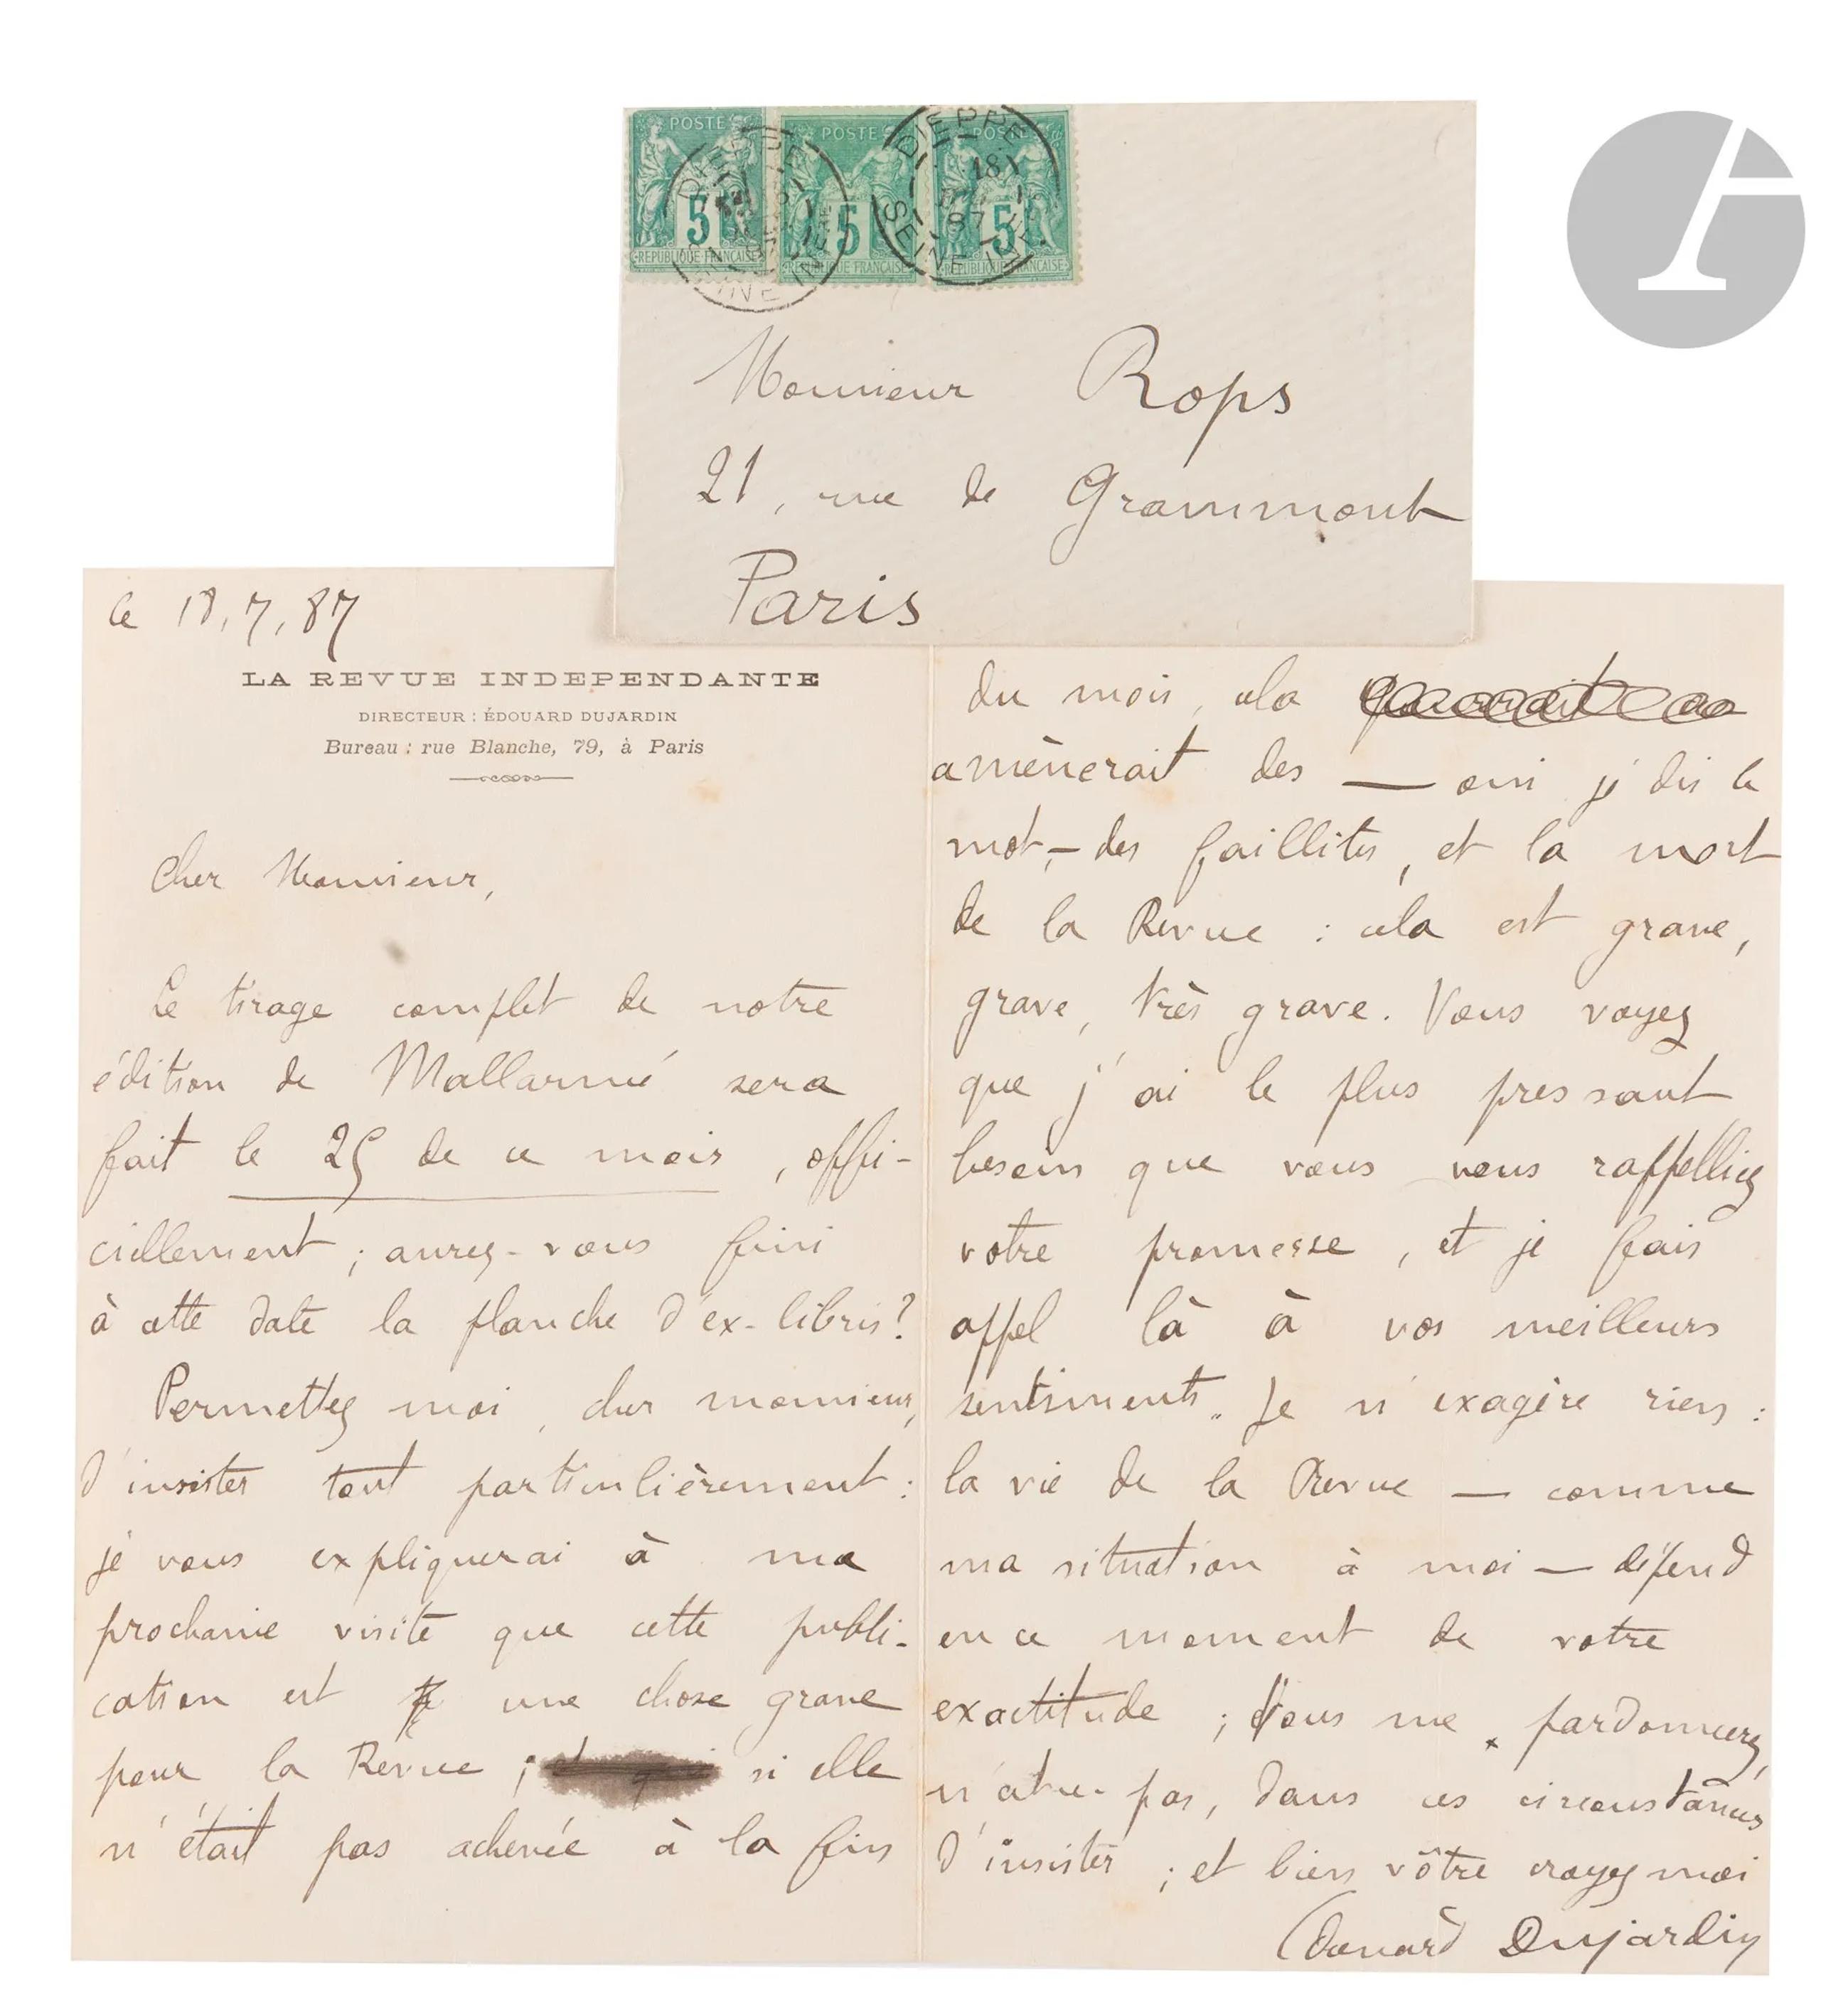 POSTE
5
REPUBLIQUE FRANÇAISE
POSTE
5
REPUBLIQUE FRANÇAISE
POSTE
5
REPUBLIQUE FRANÇAISE
DIEPPE
SEINE INFRE
DIEPPE
18
87
SEINE INFRE
Monsieur Rops
21, rue de Grammont
Paris
le 18, 7, 87
LA REVUE INDEPENDANTE
DIRECTEUR : ÉDOUARD DUJARDIN
Bureau : rue Blanche, 79, à Paris
Cher Monsieur,
Le tirage complet de notre
édition de Mallarmé sera
fait le 25 de ce mois, offi-
ciellement ; aurez-vous fini
à cette date la planche d'ex-libris?
Permettez moi, cher monsieur,
d'insister tout particulièrement :
je vous expliquerai à ma
prochaine visite que cette publi-
cation est une chose grave
pour la Revue ; si elle
n'était pas achevée à la fin
du mois, cela
amènerait des — oui je dis le
mot, — des faillites, et la mort
de la Revue : cela est grave,
grave, très grave. Vous voyez
que j'ai le plus pressant
besoin que vous vous rappelliez
votre promesse, et je fais
appel là à vos meilleurs
sentiments. Je n'exagère rien :
la vie de la Revue — comme
ma situation à moi — défend
en ce moment de votre
exactitude ; Vous me pardonnerez,
n'est-ce pas, dans ces circonstances
d'insister ; et bien vôtre croyez moi
Edouard Dujardin